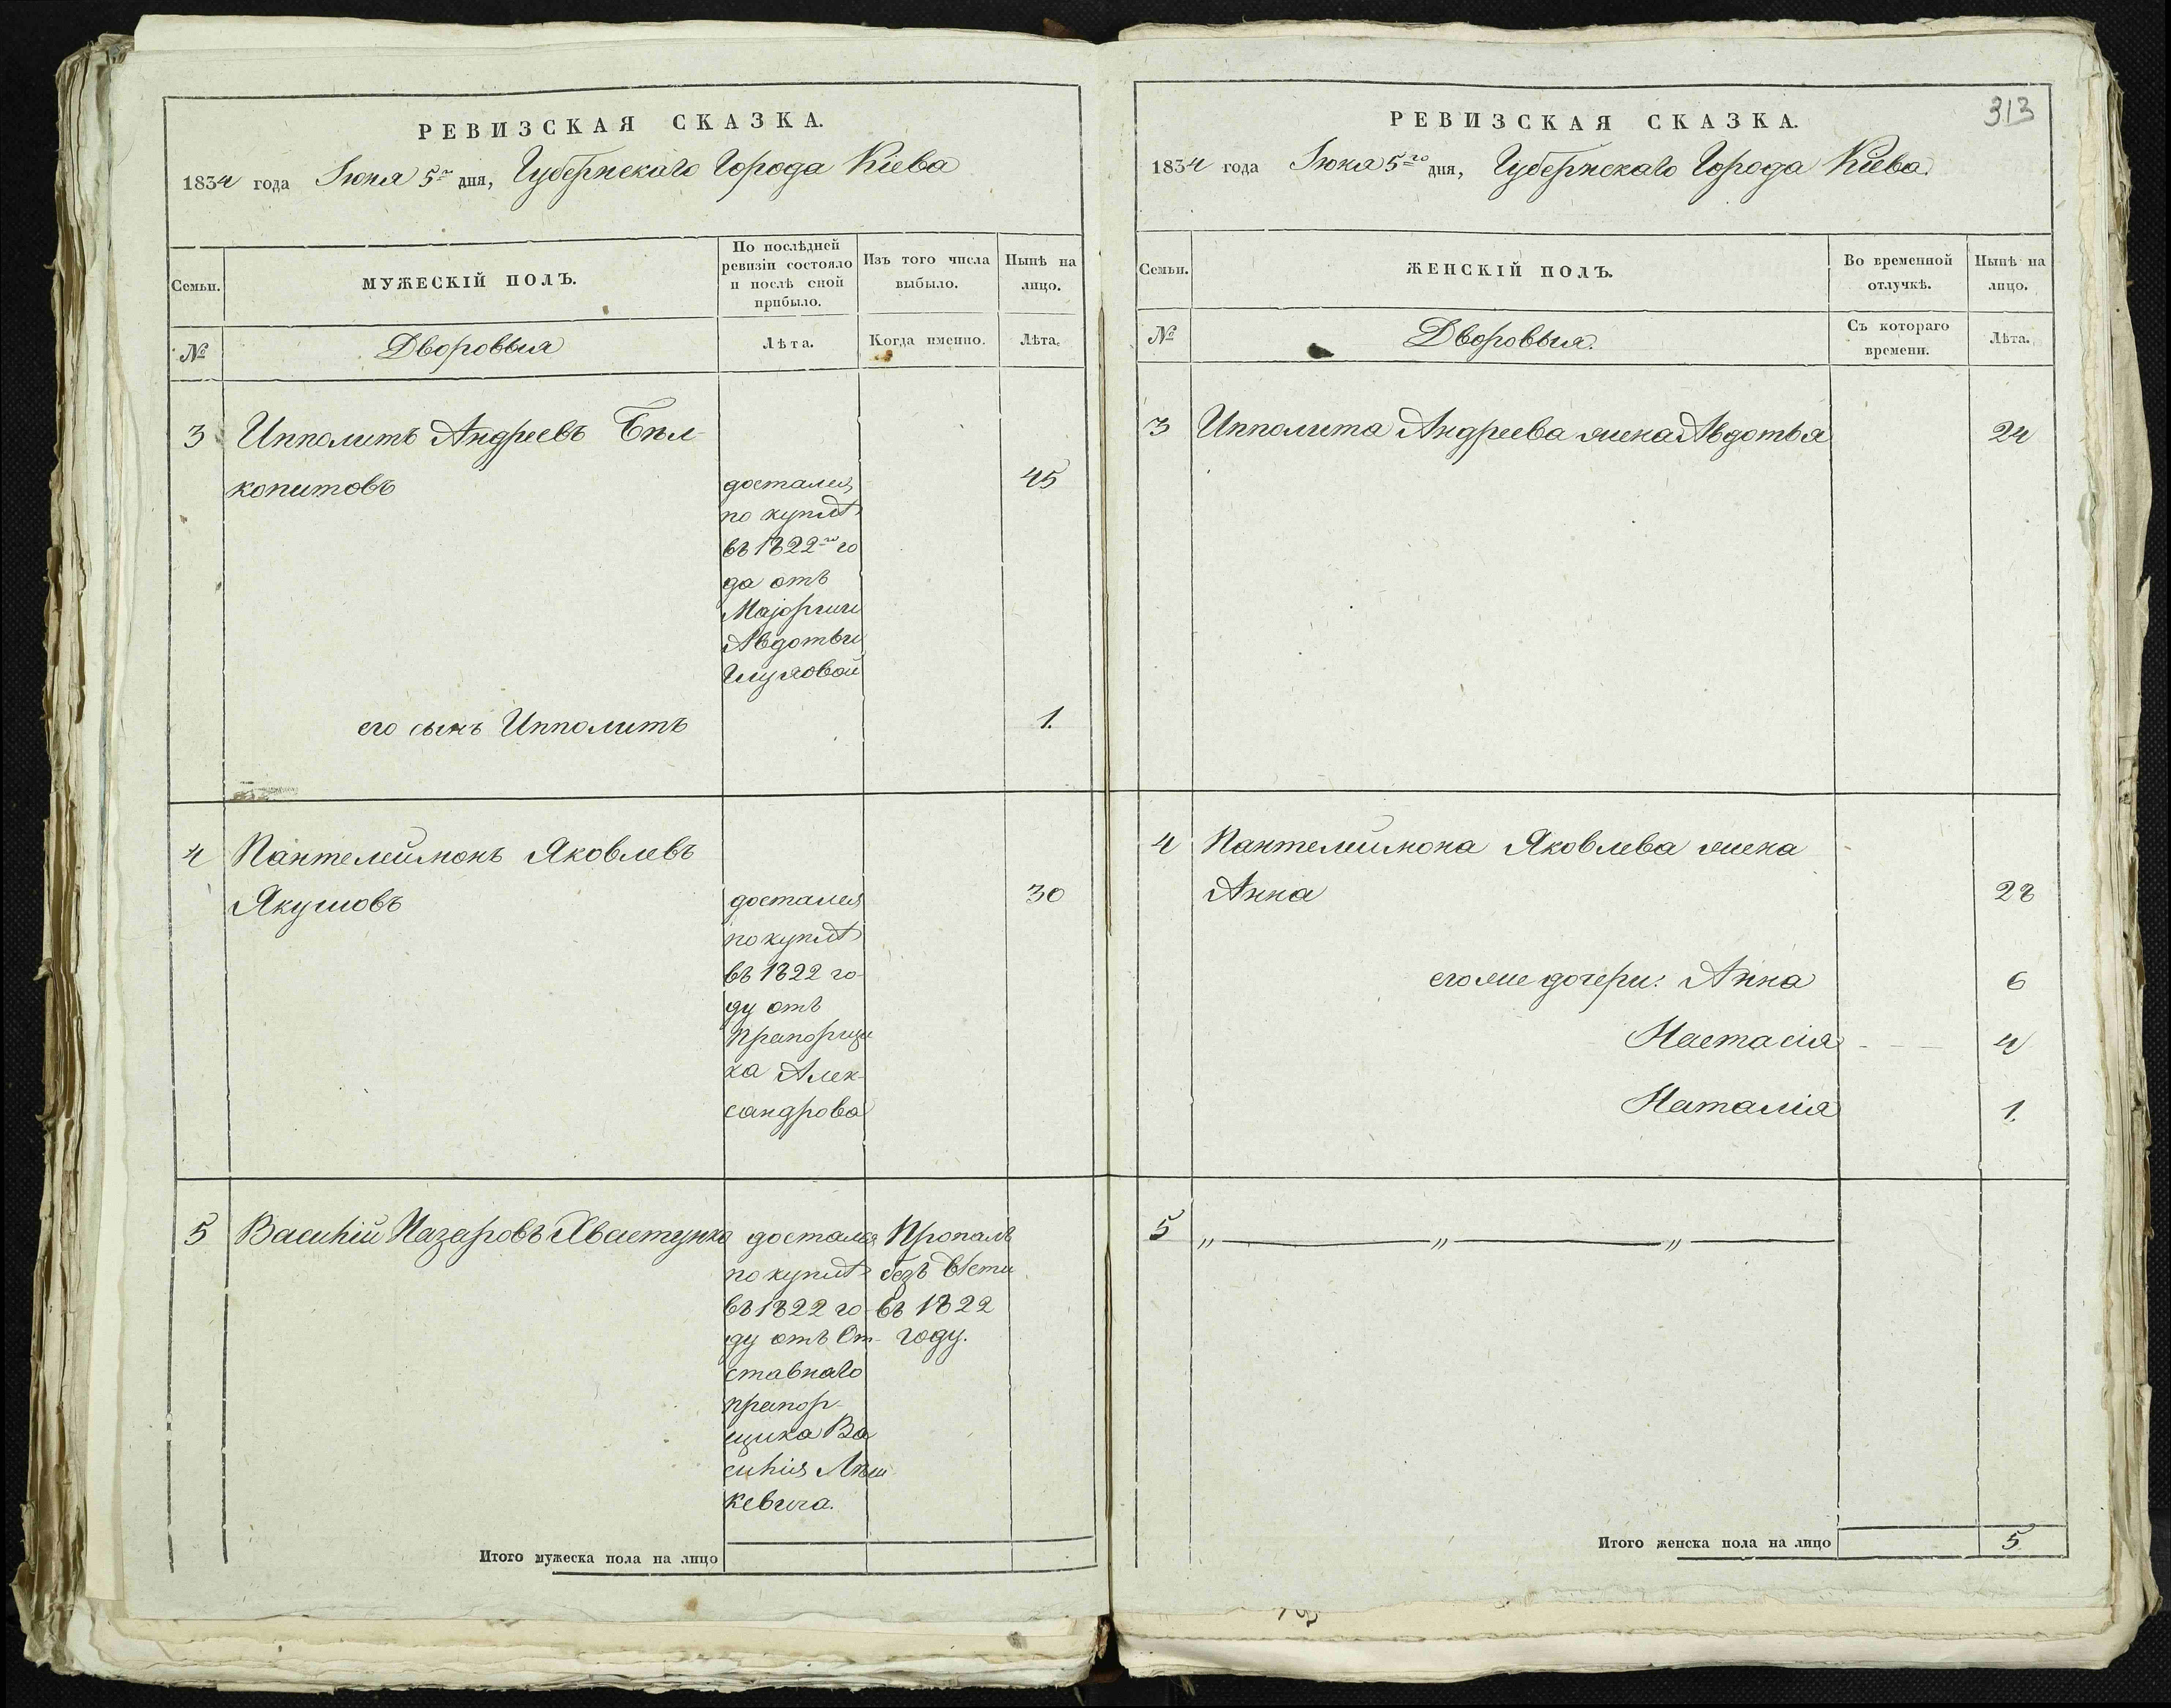 РЕВИЗСКАЯ СКАЗКА.
1834 года Июня 5го дня, Губернскаго Города Кіева
Семьи.
МУЖЕСКІЙ ПОЛЪ.
По послѣдней
ревизіи состояло
и послѣ оной
прибыло.
Изъ того числа
выбыло.
Нынѣ на
лицо.
№
Дворовыя
Лѣта.
Когда именно.
Лѣта.
3 Ипполитъ Андреевъ Бѣл-
копитовъ
достался
по куплѣ
въ 1822го го
да отъ
Маіорши
Авдотьи
45
его сынъ Ипполитъ 1.
4 Пантелеймонъ Яковлевъ
Якушовъ
достался
по куплѣ
въ 1822 го-
ду отъ
Прапорщи
ка Алек-
сандрова
30
5 Василій Назаровъ Хвастунъ
достался
по куплѣ
въ 1822 го-
ду отъ От-
ставнаго
прапор-
щика Ва
силія
кевича.
Пропалъ
безъ вѣсти
въ 1822
году.
Итого мужеска пола на лицо
313
РЕВИЗСКАЯ СКАЗКА.
1834 года Июня 5го дня, Губернскаго Города Кіева.
Семьи.
ЖЕНСКІЙ ПОЛЪ.
Во временной
отлучкѣ.
Нынѣ на
лицо.
№
Дворовыя.
Съ котораго
времени.
Лѣта.
3 Ипполита Андреева жена Авдотья 24
4 Пантелеймона Яковлева жена
Анна 28
его же дочери: Анна 6
Настасія - - - 4
Наталія 1.
5 „ — „ — „ —
Итого женска пола на лицо 5